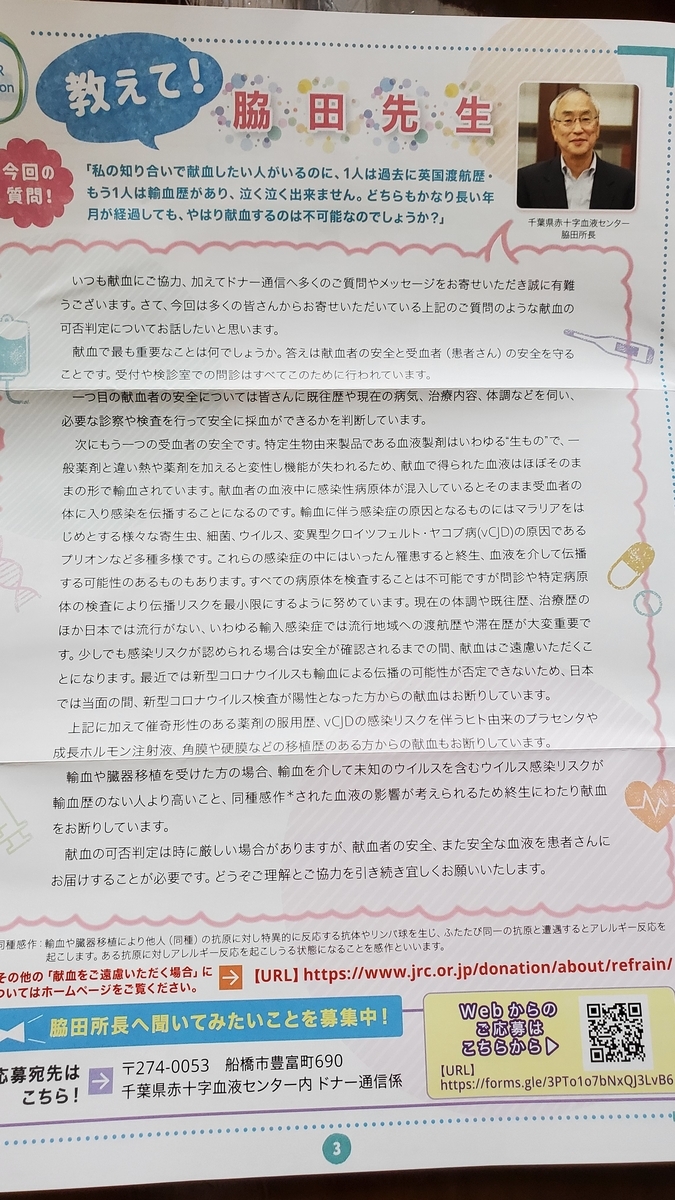 教えて!
脇田先生
今回の
質問!
「私の知り合いで献血したい人がいるのに、1人は過去に英国渡航歴・
もう1人は輸血歴があり、泣く泣く出来ません。どちらもかなり長い年
月が経過しても、やはり献血するのは不可能なのでしょうか?」
千葉県赤十字血液センター
脇田所長
いつも献血にご協力、加えてドナー通信へ多くのご質問やメッセージをお寄せいただき誠に有難
うございます。さて、今回は多くの皆さんからお寄せいただいている上記のご質問のような献血の
可否判定についてお話したいと思います。
献血で最も重要なことは何でしょうか。答えは献血者の安全と受血者(患者さん)の安全を守る
ことです。受付や検診室での問診はすべてこのために行われています。
一つ目の献血者の安全については皆さんに既往歴や現在の病気、治療内容、体調などを伺い、
必要な診察や検査を行って安全に採血ができるかを判断しています。
次にもう一つの受血者の安全です。特定生物由来製品である血液製剤はいわゆる"生もの"で、一
般薬剤と違い熱や薬剤を加えると変性し機能が失われるため、献血で得られた血液はほぼそのま
まの形で輸血されています。献血者の血液中に感染性病原体が混入しているとそのまま受血者の
体に入り感染を伝播することになるのです。輸血に伴う感染症の原因となるものにはマラリアをは
じめとする様々な寄生虫、細菌、ウイルス、変異型クロイツフェルト・ヤコブ病(vCJD)の原因である
プリオンなど多種多様です。これらの感染症の中にはいったん罹患すると終生、血液を介して伝播
する可能性のあるものもあります。すべての病原体を検査することは不可能ですが問診や特定病原
体の検査により伝播リスクを最小限にするように努めています。現在の体調や既往歴、治療歴の
ほか日本では流行がない、いわゆる輸入感染症では流行地域への渡航歴や滞在歴が大変重要で
す。少しでも感染リスクが認められる場合は安全が確認されるまでの間、献血はご遠慮いただくこ
とになります。最近では新型コロナウイルスも輸血による伝播の可能性が否定できないため、日本
では当面の間、新型コロナウイルス検査が陽性となった方からの献血はお断りしています。
上記に加えて催奇形性のある薬剤の服用歴、vCJDの感染リスクを伴うヒト由来のプラセンタや
成長ホルモン注射液、角膜や硬膜などの移植歴のある方からの献血もお断りしています。
輸血や臓器移植を受けた方の場合、輸血を介して未知のウイルスを含むウイルス感染リスクが
輸血歴のない人より高いこと、同種感作*された血液の影響が考えられるため終生にわたり献血
をお断りしています。
献血の可否判定は時に厳しい場合がありますが、献血者の安全、また安全な血液を患者さんに
お届けすることが必要です。どうぞご理解とご協力を引き続き宜しくお願いいたします。
同種感作:輸血や臓器移植により他人(同種)の抗原に対し特異的に反応する抗体やリンパ球を生じ、ふたたび同一の抗原と遭遇するとアレルギー反応を
起こします。ある抗原に対しアレルギー反応を起こしうる状態になることを感作といいます。
その他の「献血をご遠慮いただく場合」に
ついてはホームページをご覧ください。
【URL】https://www.jrc.or.jp/donation/about/refrain/
脇田所長へ聞いてみたいことを募集中!
応募宛先は
こちら!
〒274-0053 船橋市豊富町690
千葉県赤十字血液センター内 ドナー通信係
Webからの
ご応募は
こちらから
【URL】
https://forms.gle/3PTo1o7bNxQJ3LvB6
3